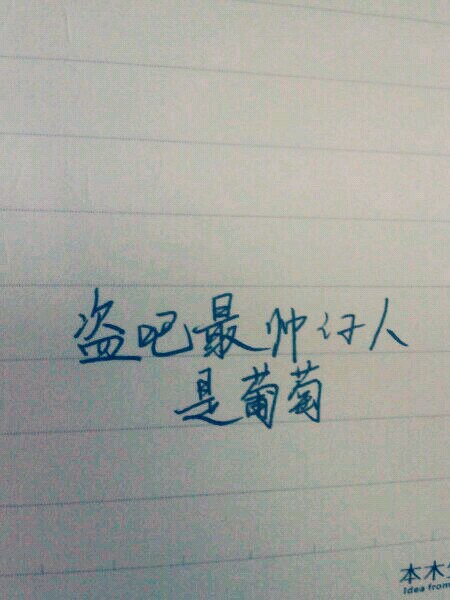 盗吧最帅的人
是葡萄
本木
Idea from